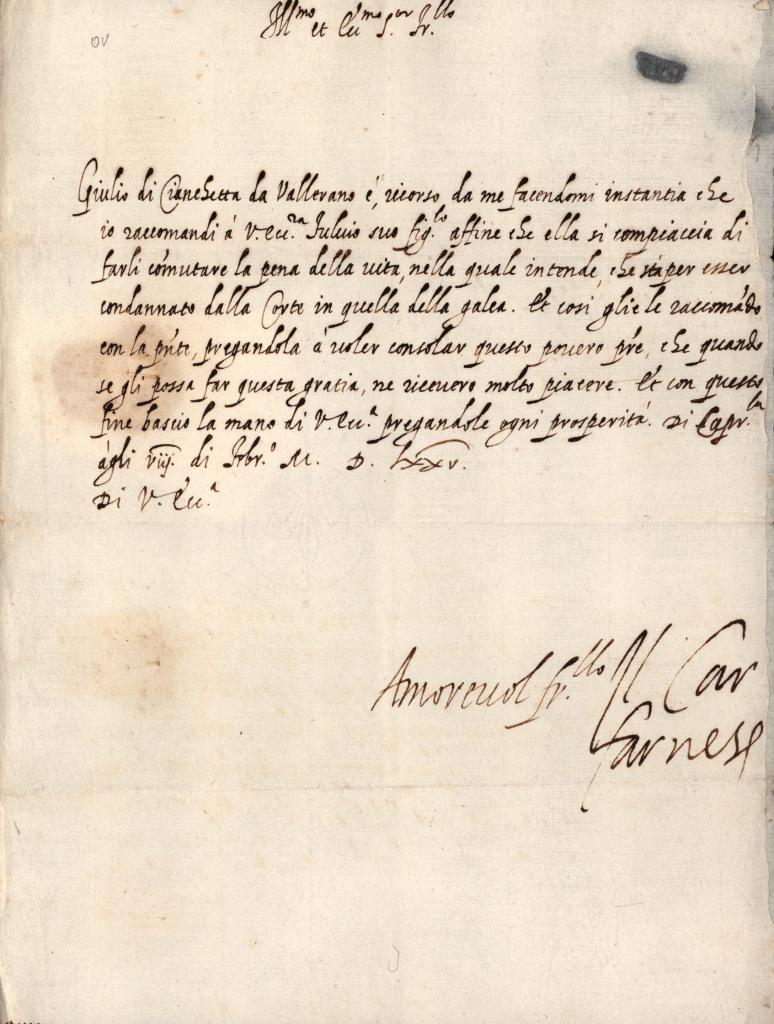 Ill.mo et Ecc.mo S.or Fr.llo
Giulio di Cianchetta da Vallerano è, ricorso da me facendomi instantia che
io raccomandi à V. Ecc.za Fulvio suo fig.lo affine che ella si compiaccia di
farli comutare la pena della vita, nella quale intende, che stà per esser
condannato dalla Corte in quella della galea. Et così glie le raccomādo
con la pn̄te, pregandola à voler consolar questo povero pr̄e, che quando
se gli possa far questa gratia, ne riceverò molto piacere. Et con questo
fine bascio la mano di V. Ecc.a pregandole ogni prosperità. Di Capr.la
àgli viij. di M. D. Lxxv.
Di V. Ecc.a
Amorevol fr.llo Il Car
farnese